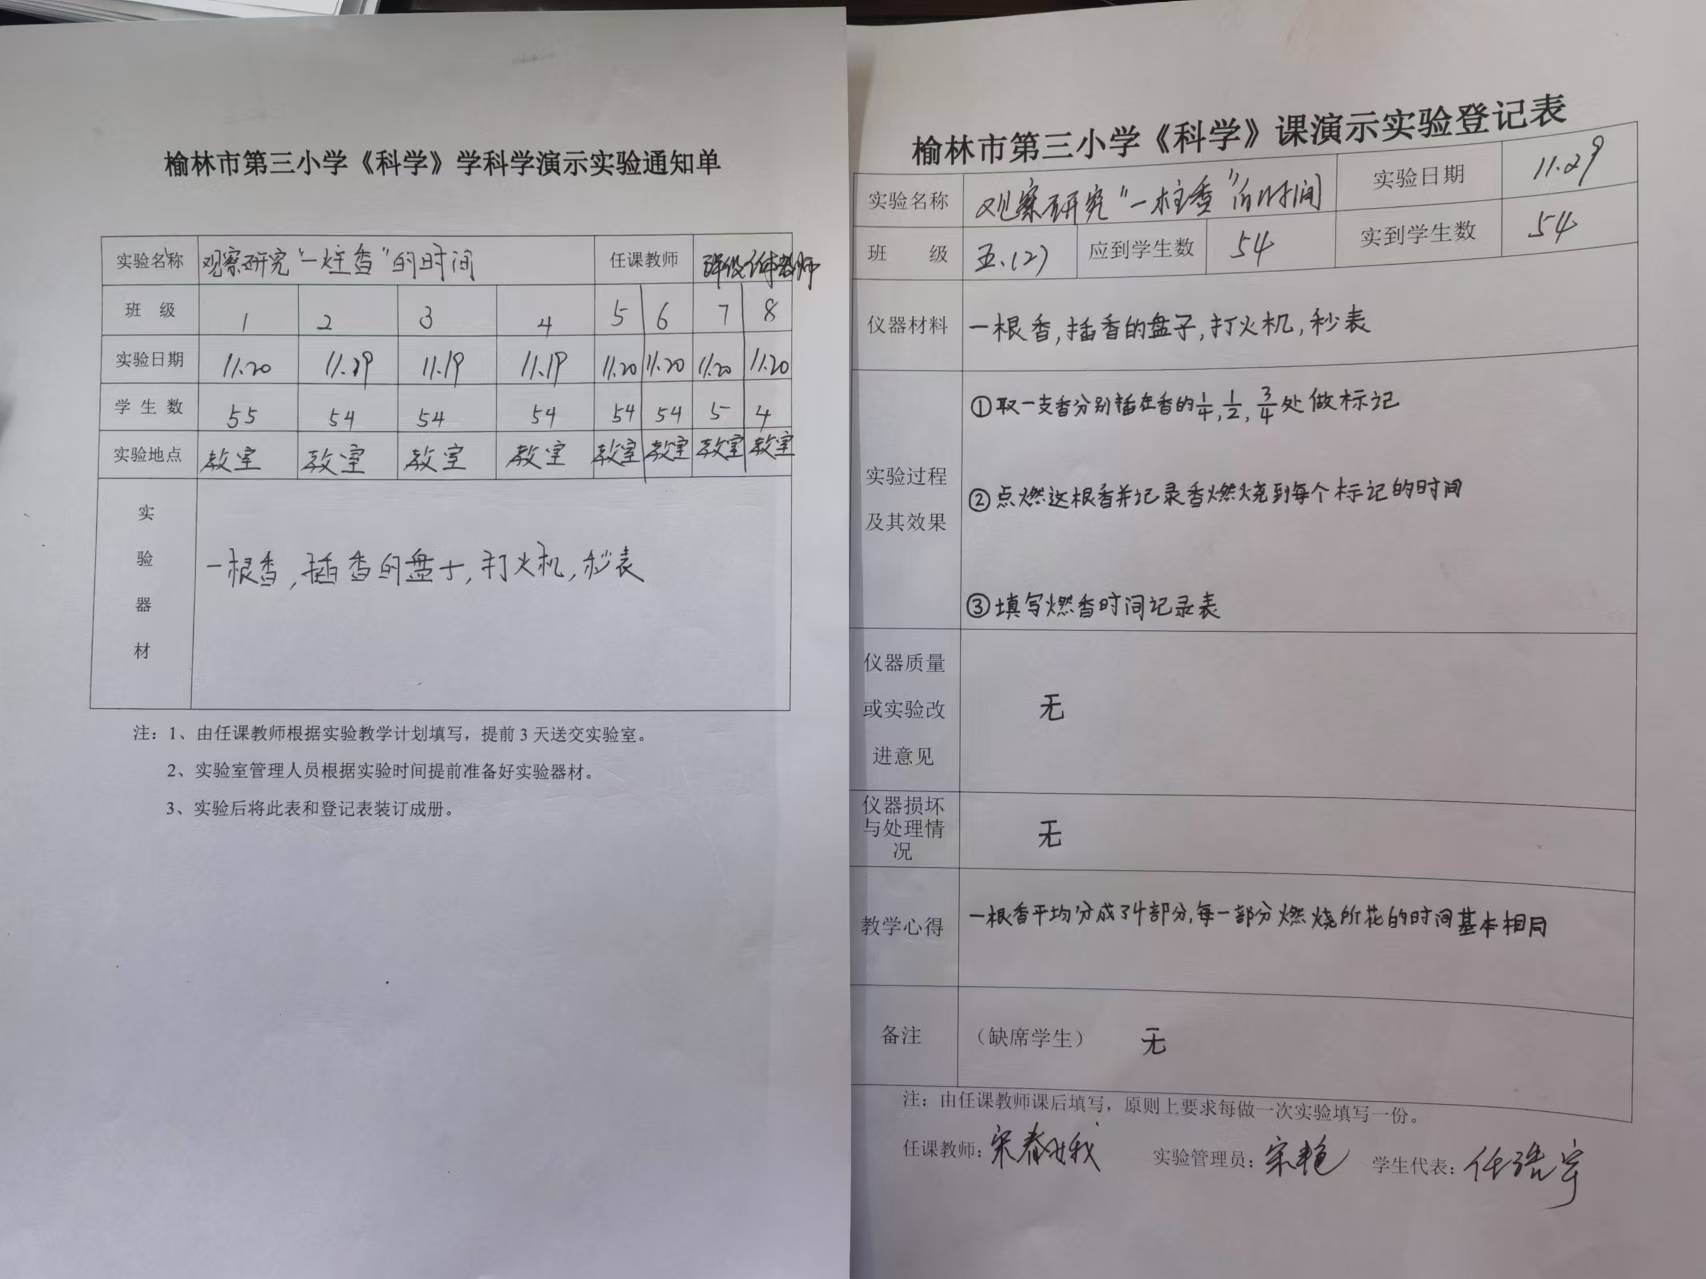 榆林市第三小学《科学》学科学演示实验通知单
实验名称 观察研究“一炷香”的时间 任课教师
班 级 1 2 3 4 5 6 7 8
实验日期 11.20 11.29 11.19 11.19 11.20 11.20 11.20 11.20
学 生 数 55 54 54 54 54 54 5 4
实验地点 教室 教室 教室 教室 教室 教室 教室 教室
实
验
器
材
一根香,插香的盘子,打火机,秒表
注：1、由任课教师根据实验教学计划填写，提前 3 天送交实验室。
2、实验室管理人员根据实验时间提前准备好实验器材。
3、实验后将此表和登记表装订成册。
榆林市第三小学《科学》课演示实验登记表
实验名称 观察研究“一柱香”的时间 实验日期 11.29
班 级 五.(2) 应到学生数 54 实到学生数 54
仪器材料 一根香,插香的盘子,打火机,秒表
实验过程
及其效果
①取一支香分别插在香的1/4,1/2,3/4处做标记
②点燃这根香并记录香燃烧到每个标记的时间
③填写燃香时间记录表
仪器质量
或实验改
进意见
无
仪器损坏
与处理情
况
无
教学心得 一根香平均分成了4部分,每一部分燃烧所花的时间基本相同
备注 （缺席学生） 无
注：由任课教师课后填写，原则上要求每做一次实验填写一份。
任课教师: 宋春娥 实验管理员: 宋艳 学生代表: 任浩宇